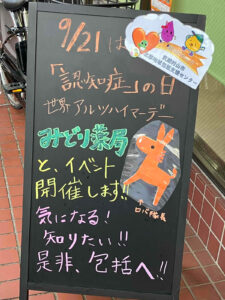 9/21は
「認知症」の日
世界アルツハイマーデー
みどり薬局
と、イベント
開催します!!
気になる!
知りたい!!
是非、包括へ!!
ロバ隊長